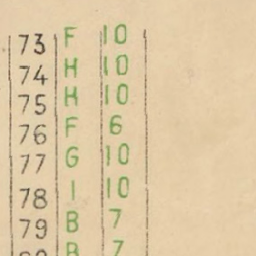 73 F 10
74 H 10
75 H 10
76 F 6
77 G 10
78 I 10
79 B 7
80 B 7